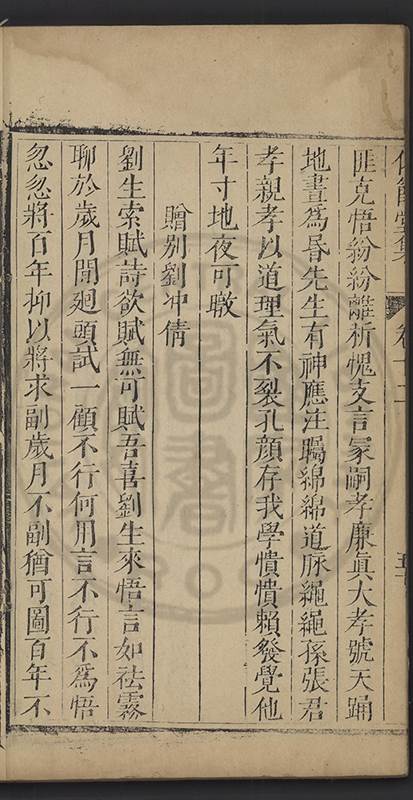 匪克悟紛紛離析愧支言冢嗣孝廉眞大孝號天踊
地晝爲昬先生有神應注矚綿綿道脉繩繩孫張君
孝親孝以道理氣不裂孔顔存我學憒憒賴發覺他
年寸地夜可暾
贈别劉冲倩
劉生索賦詩欲賦無可賦吾喜劉生來悟言如祛霧
聊於歲月間廻頭試一顧不行何用言不行不爲悟
忽忽將百年抑以將求副歲月不副猶可圖百年不